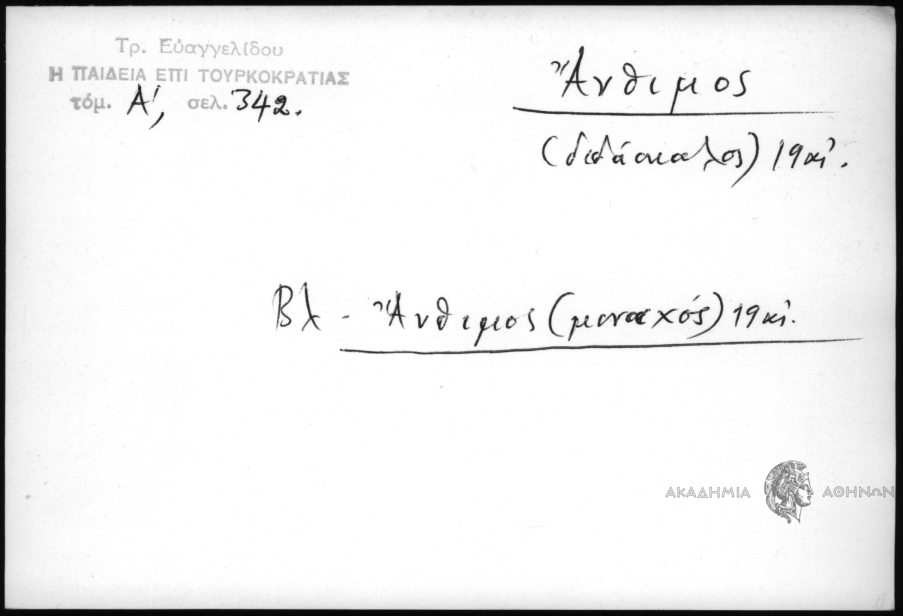 Τρ. Εὐαγγελίδου
Η ΠΑΙΔΕΙΑ ΕΠΙ ΤΟΥΡΚΟΚΡΑΤΙΑΣ
τόμ. Α', σελ. 342.
Ἄνθιμος
(διδάσκαλος) 19 αἰ.
Βλ - Ἄνθιμος (μοναχός) 19 αἰ.
ΑΚΑΔΗΜΙΑ ΑΘΗΝΩΝ